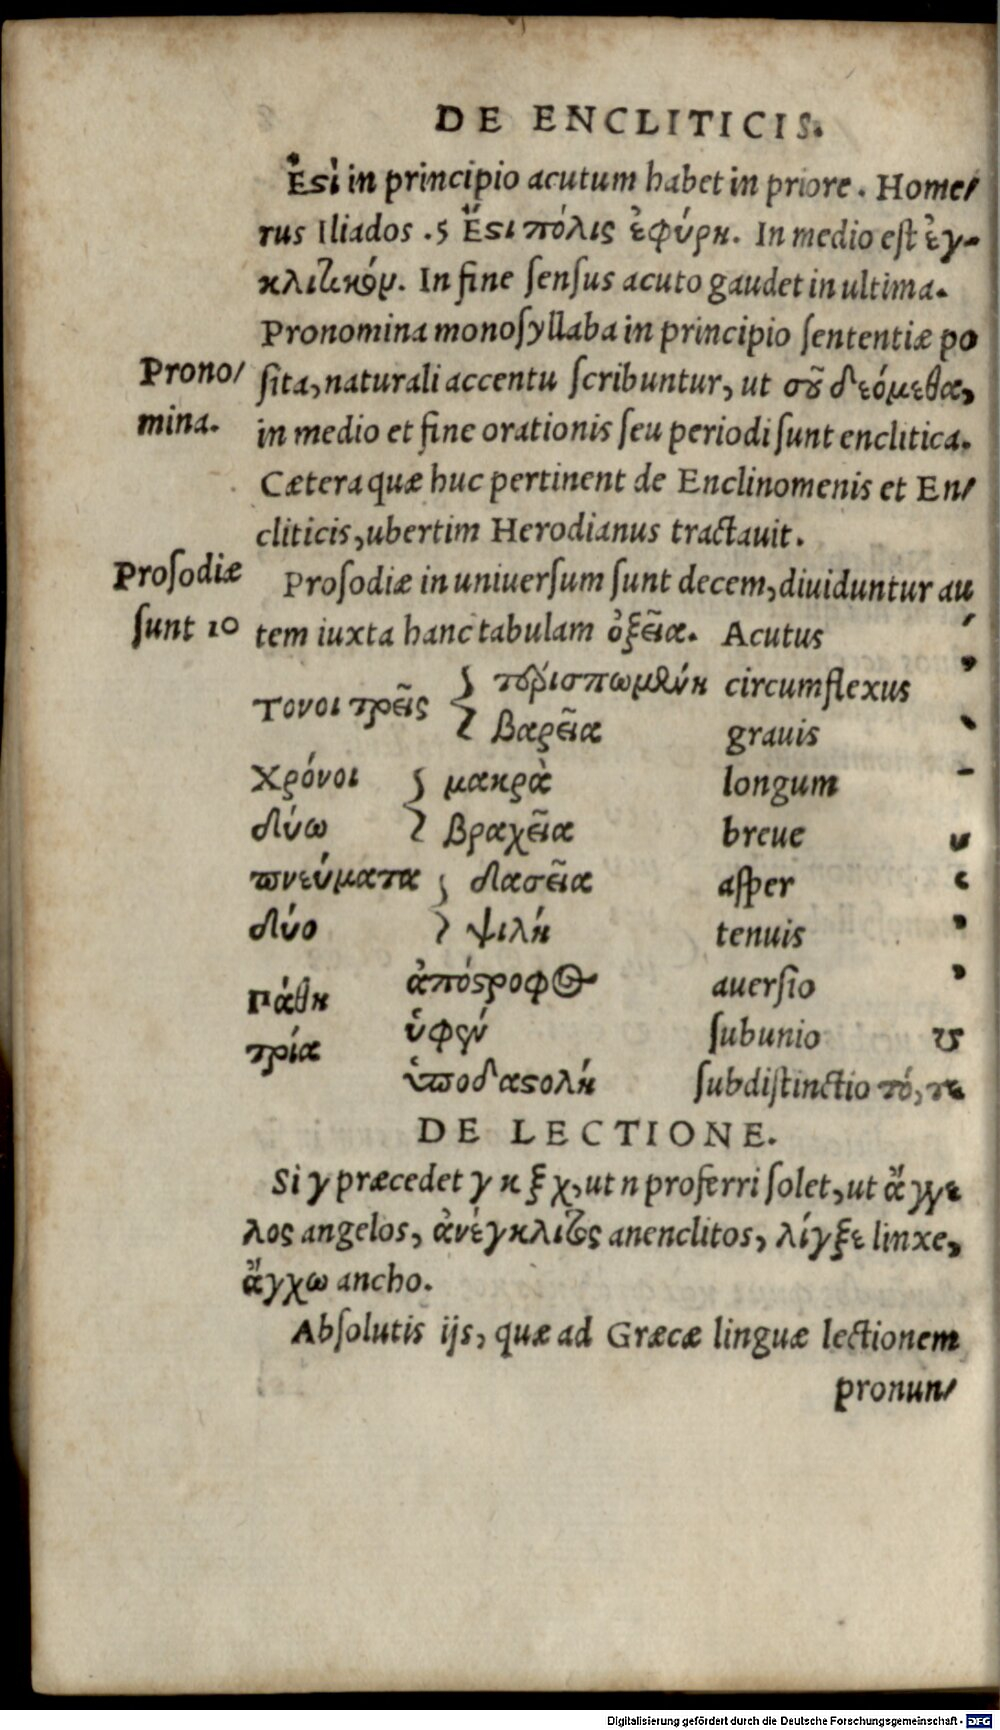 DE ENCLITICIS.
Ἐστὶ in principio acutum habet in priore. Home/
rus Iliados .5 Ἔστι πόλις ἐφύρη. In medio est ἐγ-
κλιτικόν. In fine sensus acuto gaudet in ultima.
Pronomina monosyllaba in principio sententiæ po
Prono/ sita, naturali accentu scribuntur, ut σοῦ δεόμεθα,
mina. in medio et fine orationis seu periodi sunt enclitica.
Cætera quæ huc pertinent de Enclinomenis et En/
cliticis, ubertim Herodianus tractauit.
Prosodiæ Prosodiæ in uniuersum sunt decem, diuiduntur au
sunt 10 tem iuxta hanc tabulam ὀξεῖα. Acutus ´
Τονοι τρεῖς { περισπωμένη circumflexus
βαρεῖα grauis `
Χρόνοι { μακρὰ longum -
δύω βραχεῖα breue
πνεύματα } δασεῖα asper
δύο ψιλή tenuis
Πάθη ἀπόστροφος auersio ’
τρία ὑφέν subunio
ὑποδαστολή subdistinctio τό, τε
DE LECTIONE.
Si γ præcedet γ κ ξ χ, ut n proferri solet, ut ἄγγε
λος angelos, ἀνέγκλιτος anenclitos, λίγξε linxe,
ἄγχω ancho.
Absolutis ijs, quæ ad Græcæ linguæ lectionem
pronun/
Digitalisierung gefördert durch die Deutsche Forschungsgemeinschaft - DFG